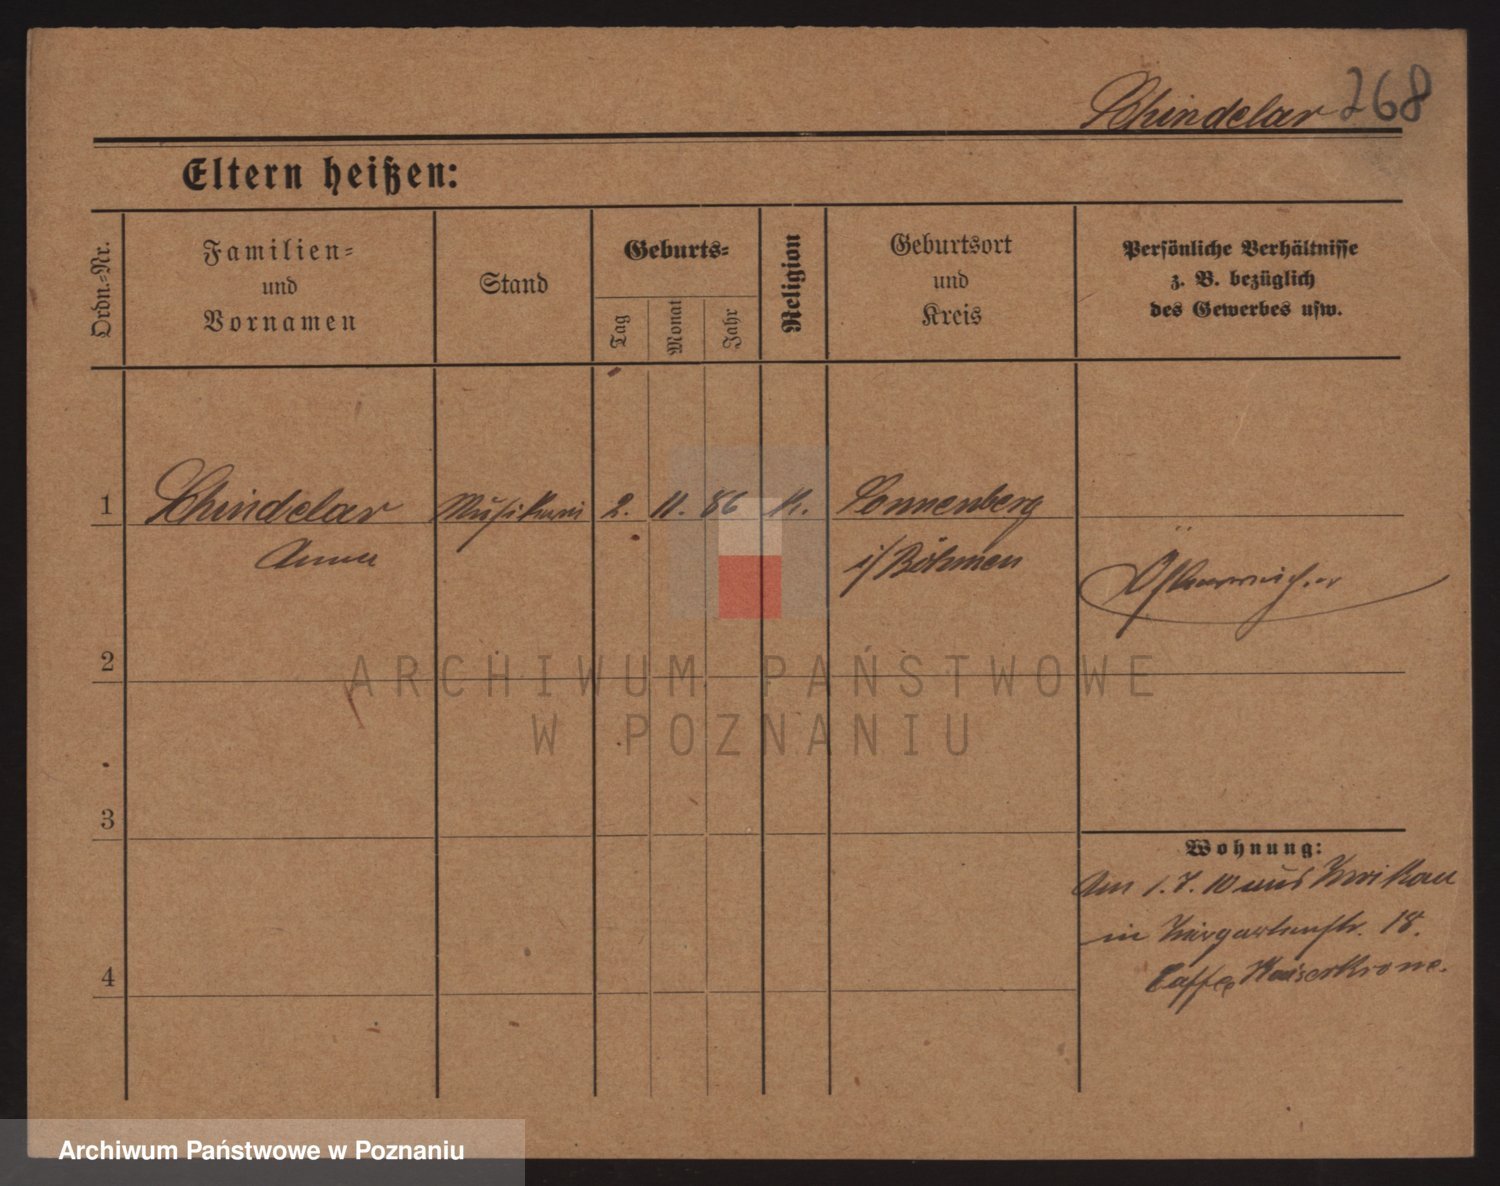 Schindelar 268
Eltern heißen:
Ordn.-Nr.
Familien-
und
Vornamen
Stand
Geburts-
Tag
Monat
Jahr
Religion
Geburtsort
und
Kreis
Persönliche Verhältnisse
z. B. bezüglich
des Gewerbes usw.
1 Schindelar 2. 11. 86 K. Sonnenberg
Anna i/Böhmen
Österreicher
2
ARCHIWUM PAŃSTWOWE
W POZNANIU
3
Wohnung:
Am 1.7.10 aus Zwikau
in Tiergartenstr. 18.
Caffe Kaiserkrone.
4
Archiwum Państwowe w Poznaniu